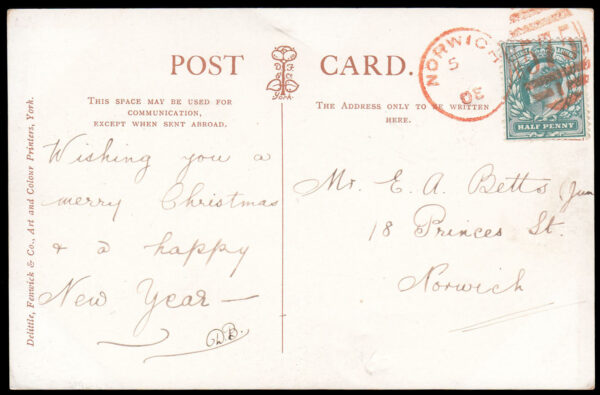 POST CARD.
THIS SPACE MAY BE USED FOR
COMMUNICATION,
EXCEPT WHEN SENT ABROAD.
THE ADDRESS ONLY TO BE WRITTEN
HERE.
Wishing you a
merry Christmas
& a happy
New Year —
D.B.
Mr. E. A. Betts (Jun
18 Princes St.
Norwich
NORWICH
5
05
HALF PENNY
Delittle, Fenwick & Co., Art and Colour Printers, York.